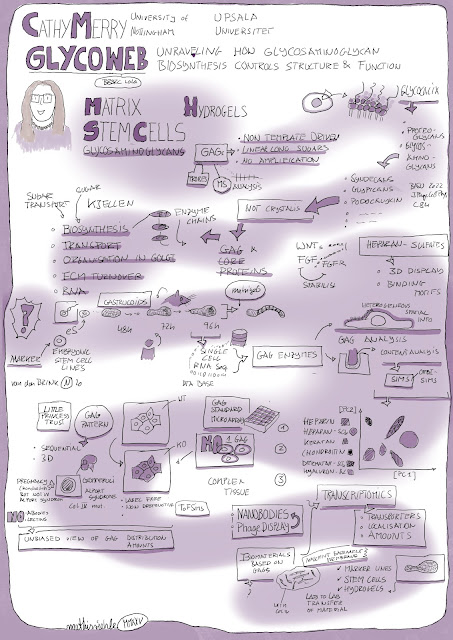 CATHY MERRY
UNIVERSITY of
NOTTINGHAM
UPSALA
UNIVERSITET
GLYCOWEB
UNRAVELING HOW GLYCOSAMINOGLYCAN
BIOSYNTHESIS CONTROLS STRUCTURE & FUNCTION
BBSRC
MATRIX
HYDROGELS
STEM CELLS
GLYCOSAMINOGLYCANS
GAGs
• NON TEMPLATE DRIVEN
• LINEAR LONG SUGARS
• NO AMPLIFICATION
PROBES
MS
ANALYSIS
GLYCOCALIX
• PROTEO-
GLYCANS
• GLYCOS-
AMINO-
GLYCANS
SYNDECANS
GLYPICANS
PODOCALYXIN
2022
NOT CRYSTALIS
SUGAR
TRANSPORT
KJELLEN
ENZYME
CHAINS
• BIOSYNTHESIS
• TRANSPORT
• ORGANISATION IN GOLGI
• ECM TURNOVER
GAG &
CORE
PROTEINS
WNT
FGF
FGFR
STABILIS
HEPARAN-SULFATES
• 3D DISPLAYS
• BINDING
MOTIFS
HETEROGENEOUS
SPATIAL
INFO
GASTRULOIDS
matrigel
?
eS
48h
72h
96h
MARKER
EMBRYONIC
STEM CELL
LINES
SINGLE
CELL
RNA SEQ
DATA BASE
GAG ENZYMES
GAG ANALYSIS
CONTENT ANALYSIS
SIMS
ORBI-
SIMS
van den BRINK N 20
LITTLE
PRINCESS
TRUST
GAG
PATTERN
• SEQUENTIAL
• 3D
WT
KO
GAG
STANDARD
MICROARRAY
NO
1 GAG
1
2
3
COMPLEX
TISSUE
[PC2]
[PC1]
HEPARIN
HEPARAN-SO4
KERATAN
CHONDROITIN
DERMATAN-SO4
HYALURON-A
PREGNANCY
BUT NOT IN
ALPORT SYNDROM
GLOMERULI
ALPORT
SYNDROME
Col IV mut.
• LABEL FREE
• NON DESTRUCTIVE
ToFSIMS
NO
UNBIASED VIEW OF GAG DISTRIBUTION
AMOUNTS
NANOBODIES
Phage DISPLAY
TRANSCRIPTOMICS
• TRANSPORTERS
• LOCALISATION
• AMOUNTS
BIOMATERIALS
BASED ON
GAGs
NASCENT BASEMENT
MEMBRANE
✓ MARKER LINES
✓ STEM CELLS
✓ HYDROGELS
LAB TO LAB
TRANSFER
OF MATERIAL